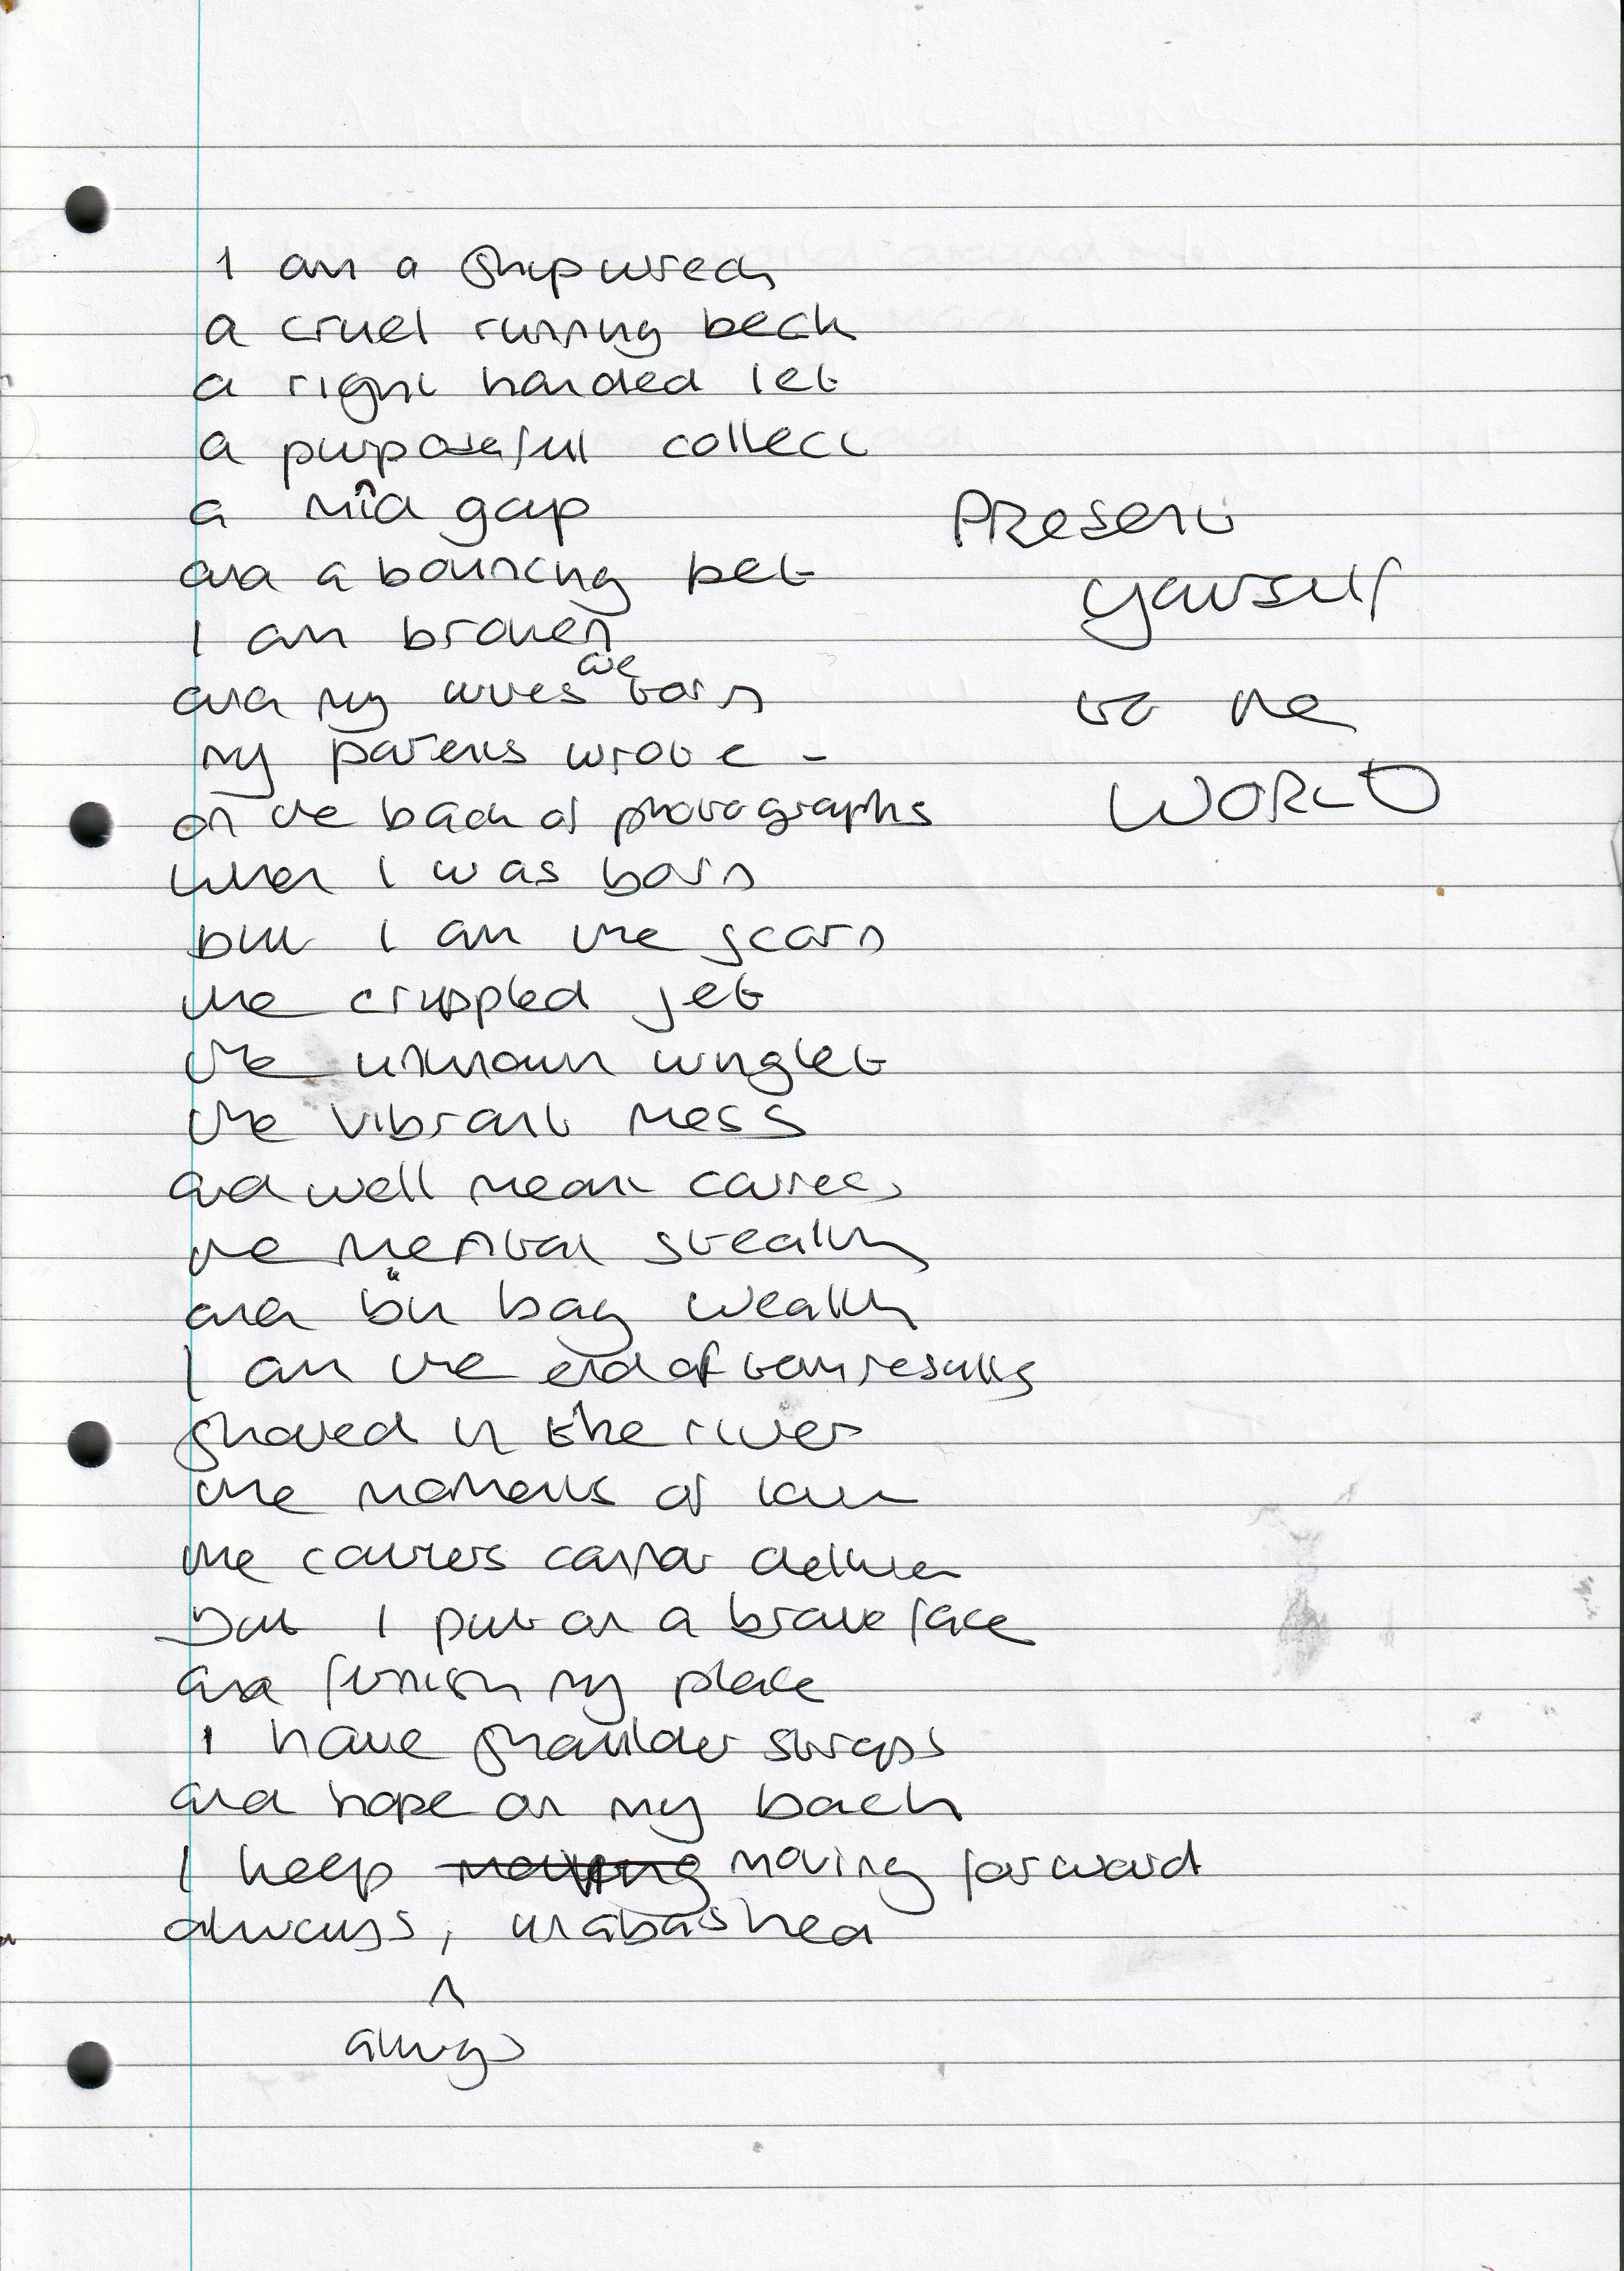 I am a shipwreck
a cruel running beck
a right handed let
a purposeful collect
a mid gap
and a bouncing bet
I am broken
and my wires are torn
my parents wrote -
on the back of photographs
when I was born
but I am the scorn
the crippled jet
the unknown winglet
the vibrant mess
and well meant caress
the mental stealth
and bin bag wealth
I am the end of term results
shoved in the river
the moments of love
the couriers cannot deliver
but I put on a brave face
and finish my plate
I have shoulder straps
and hope on my back
I keep moving forward
always, unabashed
always
PResent
yourself
to the
WORLD